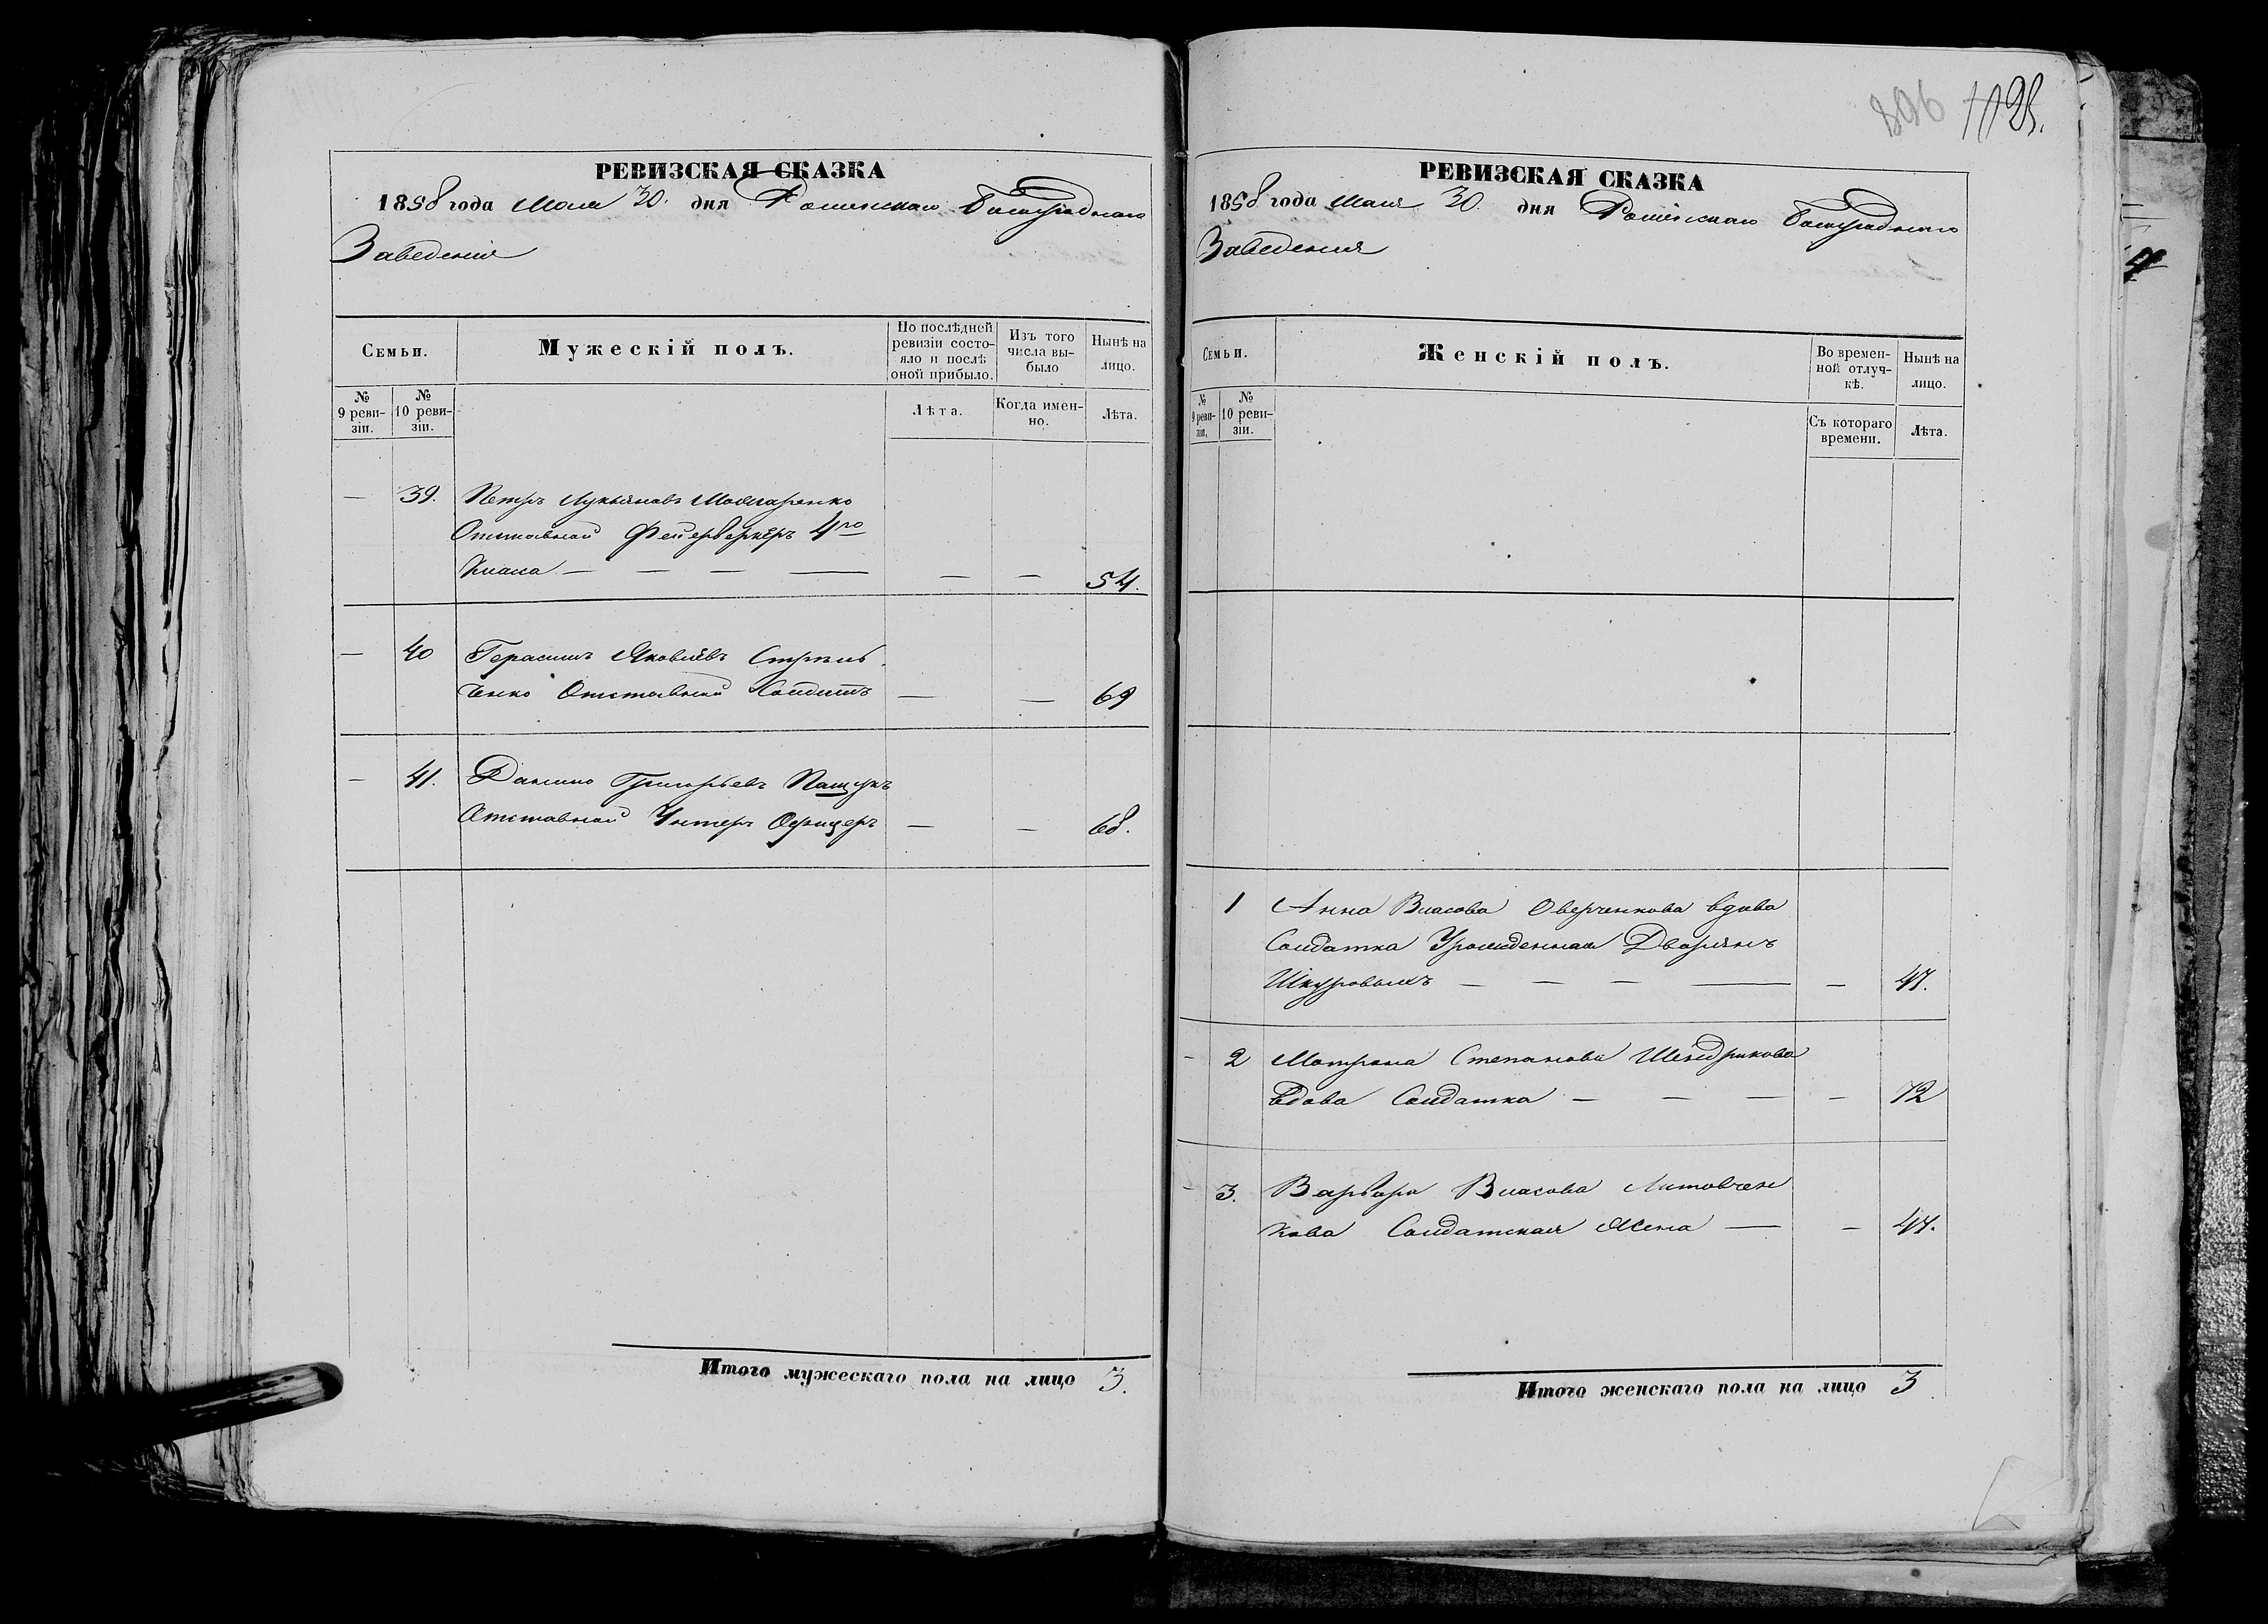 РЕВИЗСКАЯ СКАЗКА
1858 года Мая 30. дня Роменскаго Богоугоднаго
Заведения
Семьи.
Мужескій полъ.
По послѣдней ревизіи состояло и послѣ оной прибыло.
Изъ того числа выбыло
Нынѣ на лицо.
№ 9 ревизіи.
№ 10 ревизіи.
Лѣта.
Когда именно.
Лѣта.
— 39. Петръ Лукьяновъ
Отставной Фейерверкеръ 4го
Класа — — — — — — 54.
— 40 Герасимъ Яковлевъ
Отставной — — 69
— 41. Данило Григорьевъ Пащукъ
Отставной Унтеръ Офицеръ — — 68.
Итого мужескаго пола на лицо 3.
806 1025.
РЕВИЗСКАЯ СКАЗКА
1858 года Мая 30. дня Роменскаго Богоугоднаго
Заведения
Семьи.
Женскій полъ.
Во временной отлучкѣ.
Нынѣ на лицо.
№ 9 ревизіи.
№ 10 ревизіи.
Съ котораго времени.
Лѣта.
1 Анна Власова Оверченкова вдова
Солдатка Урожденная Дворянъ
Шкуровыхъ — — — — — 47.
— 2 Матрона Степанова Шендрикова
вдова Солдатка — — — — 72
— 3. Варвара Власова Литовчен
кова Солдатская Жена — — 47.
Итого женскаго пола на лицо 3
4